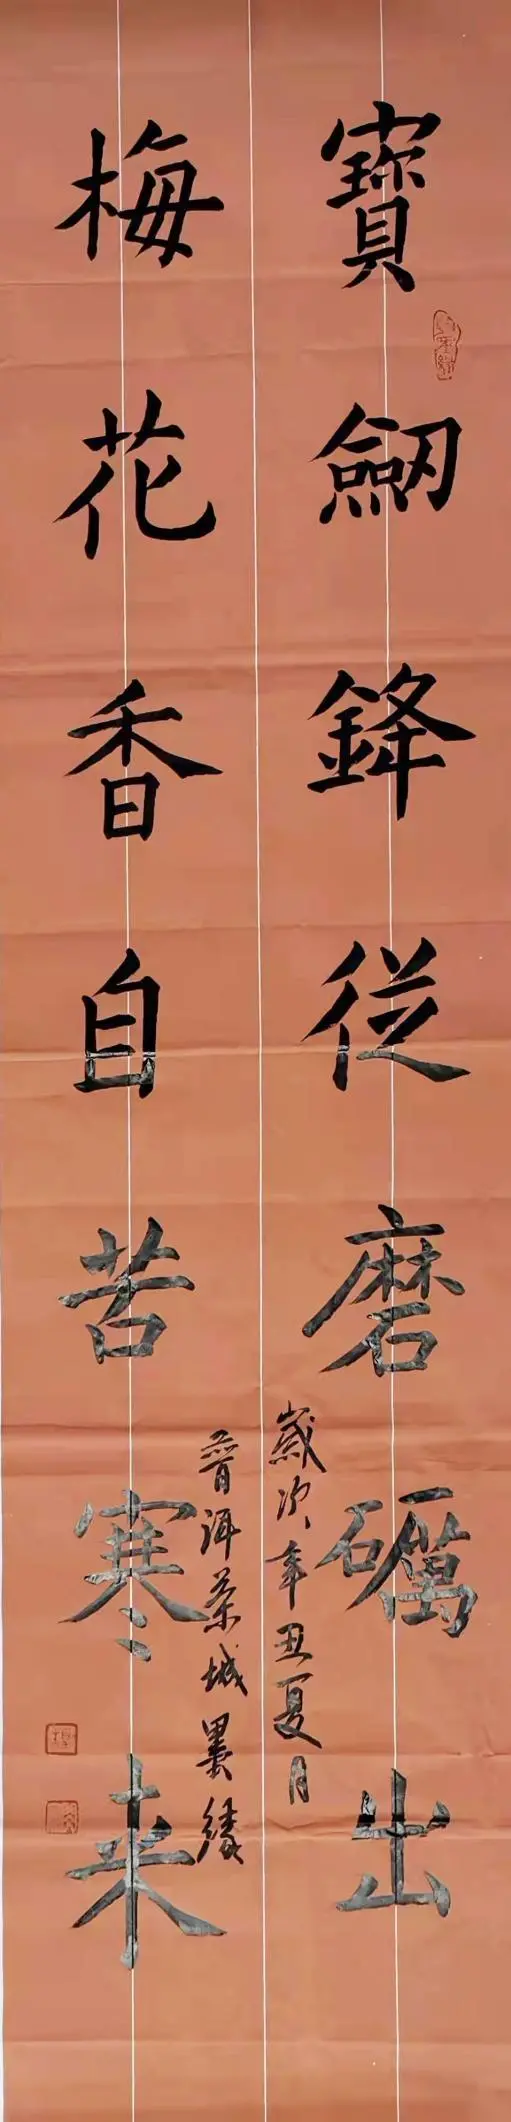 寶劒鋒従磨礪出
歲次辛丑夏月
普洱茶城墨緣
梅花香自苦寒来